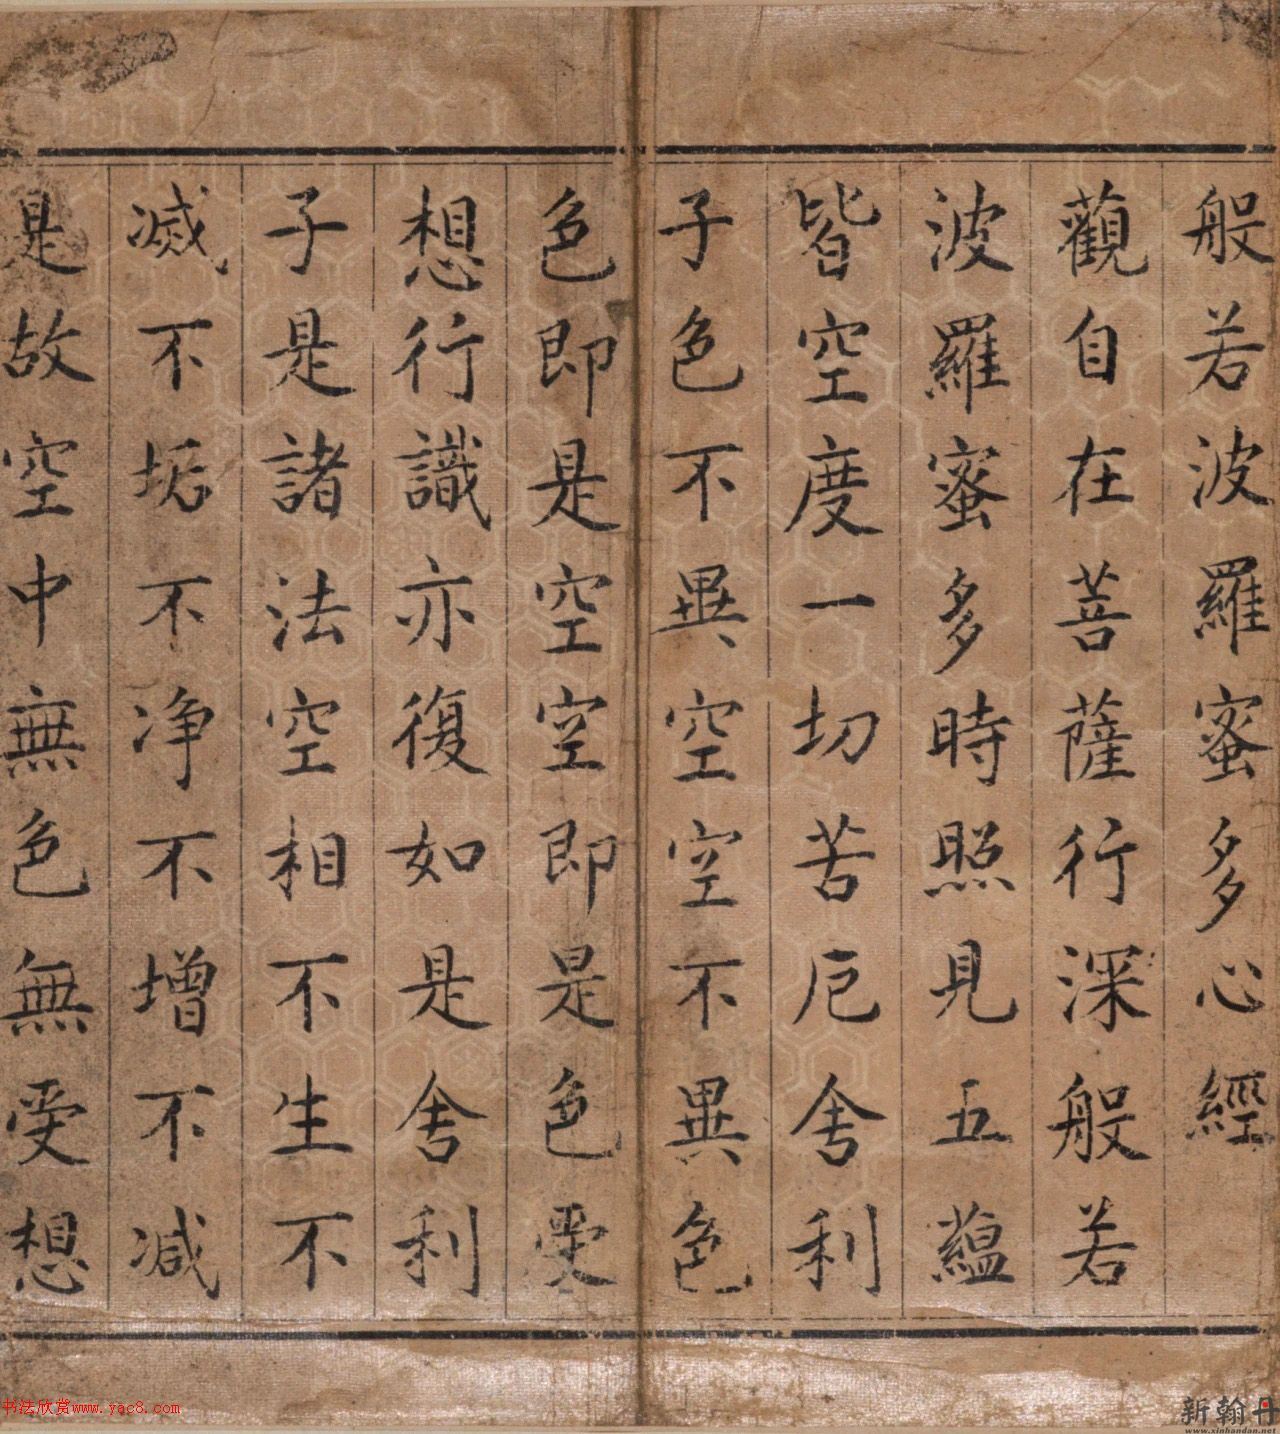 般若波羅蜜多心經
觀自在菩薩行深般若
波羅蜜多時照見五蘊
皆空度一切苦厄舍利
子色不異空空不異色
色即是空空即是色受
想行識亦復如是舍利
子是諸法空相不生不
滅不垢不净不增不减
是故空中無色無受想
书法欣赏www.yac8.com
新翰丹
www.xinhandan.net